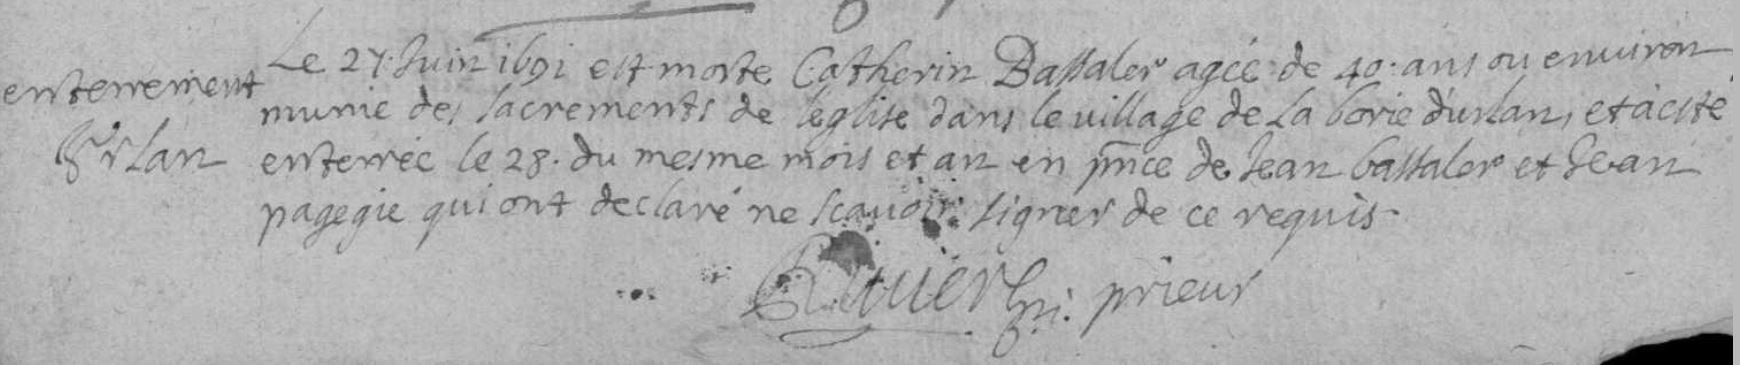 enterrement
Urlan
Le 27. Juin 1691 est morte Catherin Bastaler agée de 40. ans ou environ
munie des sacrements de leglise dans le village de La borie d'urlan, et a esté
enterrée le 28. du mesme mois et an en pnce de Jean bastaler et Jean
pagegie qui ont declaré ne scavoir signer de ce requis
prieur